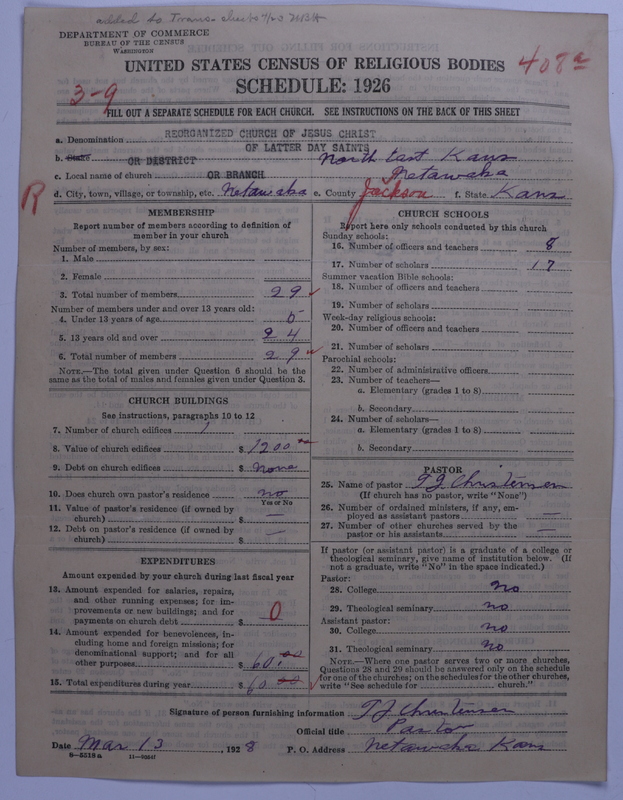 added to Trans.
DEPARTMENT OF COMMERCE
BUREAU OF THE CENSUS
WASHINGTON
UNITED STATES CENSUS OF RELIGIOUS BODIES
408a
SCHEDULE: 1926
3-9
FILL OUT A SEPARATE SCHEDULE FOR EACH CHURCH. SEE INSTRUCTIONS ON THE BACK OF THIS SHEET
a. Denomination REORGANIZED CHURCH OF JESUS CHRIST
OF LATTER DAY SAINTS
b. State OR DISTRICT North East Kans
c. Local name of church OR BRANCH Netawaka
R
d. City, town, village, or township, etc. Netawaka e. County Jackson f. State Kans
MEMBERSHIP
Report number of members according to definition of
member in your church
Number of members, by sex:
1. Male
2. Female
3. Total number of members 29
Number of members under and over 13 years old:
4. Under 13 years of age 5
5. 13 years old and over 24
6. Total number of members 29
NOTE.—The total given under Question 6 should be the
same as the total of males and females given under Question 3.
CHURCH BUILDINGS
See instructions, paragraphs 10 to 12
7. Number of church edifices 1
8. Value of church edifices $ 1200
9. Debt on church edifices $ None
10. Does church own pastor's residence no
Yes or No
11. Value of pastor's residence (if owned by
church) $ —
12. Debt on pastor's residence (if owned by
church) $ —
EXPENDITURES
Amount expended by your church during last fiscal year
13. Amount expended for salaries, repairs,
and other running expenses; for im-
provements or new buildings; and for
payments on church debt $ 0
14. Amount expended for benevolences, in-
cluding home and foreign missions; for
denominational support; and for all
other purposes $ 60.00
15. Total expenditures during year $ 60 00
CHURCH SCHOOLS
Report here only schools conducted by this church
Sunday schools:
16. Number of officers and teachers 8
17. Number of scholars 17
Summer vacation Bible schools:
18. Number of officers and teachers
19. Number of scholars
Week-day religious schools:
20. Number of officers and teachers
21. Number of scholars
Parochial schools:
22. Number of administrative officers
23. Number of teachers—
a. Elementary (grades 1 to 8)
b. Secondary
24. Number of scholars—
a. Elementary (grades 1 to 8)
b. Secondary
PASTOR
25. Name of pastor T J Christensen
(If church has no pastor, write "None")
26. Number of ordained ministers, if any, em-
ployed as assistant pastors —
27. Number of other churches served by the
pastor or his assistants —
If pastor (or assistant pastor) is a graduate of a college or
theological seminary, give name of institution below. (If
not a graduate, write "No" in the space indicated.)
Pastor:
28. College No
29. Theological seminary no
Assistant pastor:
30. College No
31. Theological seminary No
NOTE.—Where one pastor serves two or more churches,
Questions 28 and 29 should be answered only on the schedule
for one of the churches; on the schedules for the other churches,
write "See schedule for church."
Signature of person furnishing information T J Christensen
Official title Pastor
Date Mar 13, 1928 P. O. Address Netawaka Kans
8—5518a